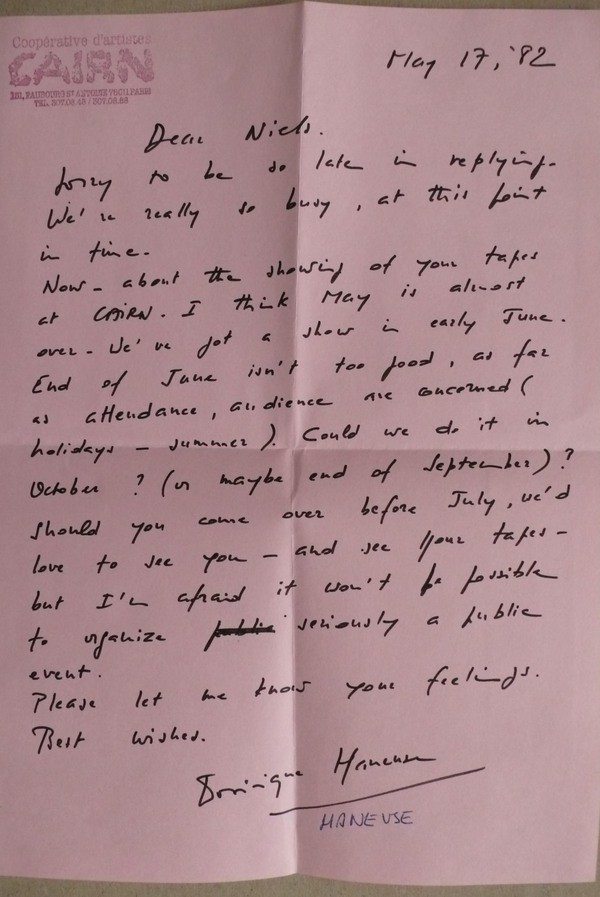 Coopérative d'artistes
CAIRN
151, FAUBOURG ST ANTOINE 75011 PARIS
TEL. 307.08.48 / 307.08.88
May 17, '82
Dear Niels.
Sorry to be so late in replying.
We're really so busy, at this point
in time.
Now - about the showing of your tapes
at CAIRN. I think May is almost
over - We've got a show in early June.
End of June isn't too good, as far
as attendance, audience are concerned (
holidays - summer). Could we do it in
October ? (or maybe end of September) ?
Should you come over before July, we'd
love to see you - and see your tapes -
but I'm afraid it won't be possible
to organize public seriously a public
event.
Please let me know your feelings.
Best wishes.
Dominique Maneuse
MANEUSE